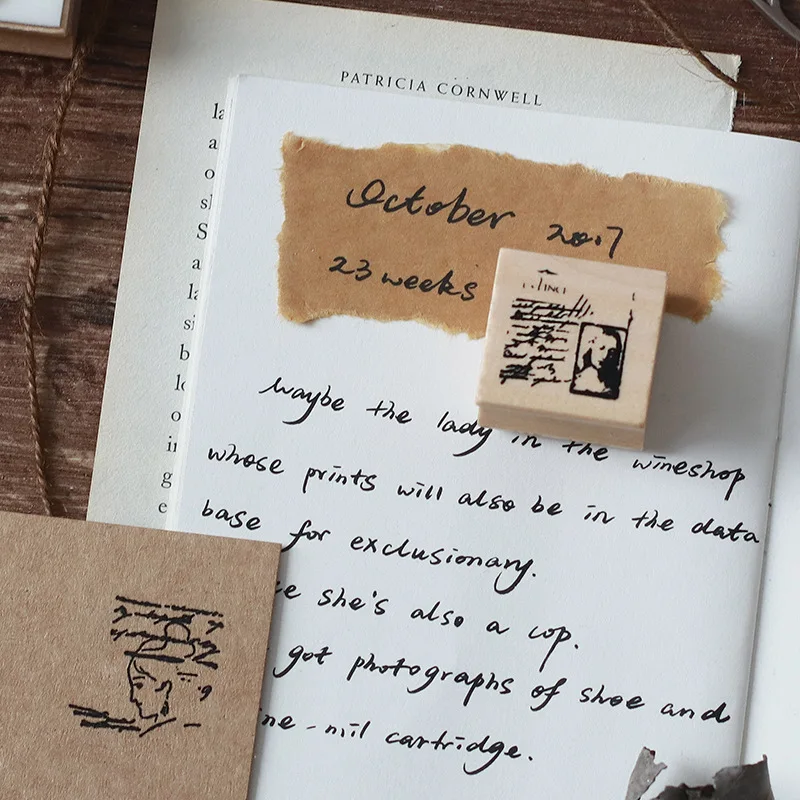 PATRICIA CORNWELL
October 2017
23 weeks
Maybe the lady in the wineshop
whose prints will also be in the data
base for exclusionary.
she's also a cop.
got photographs of shoe and
cartridge.